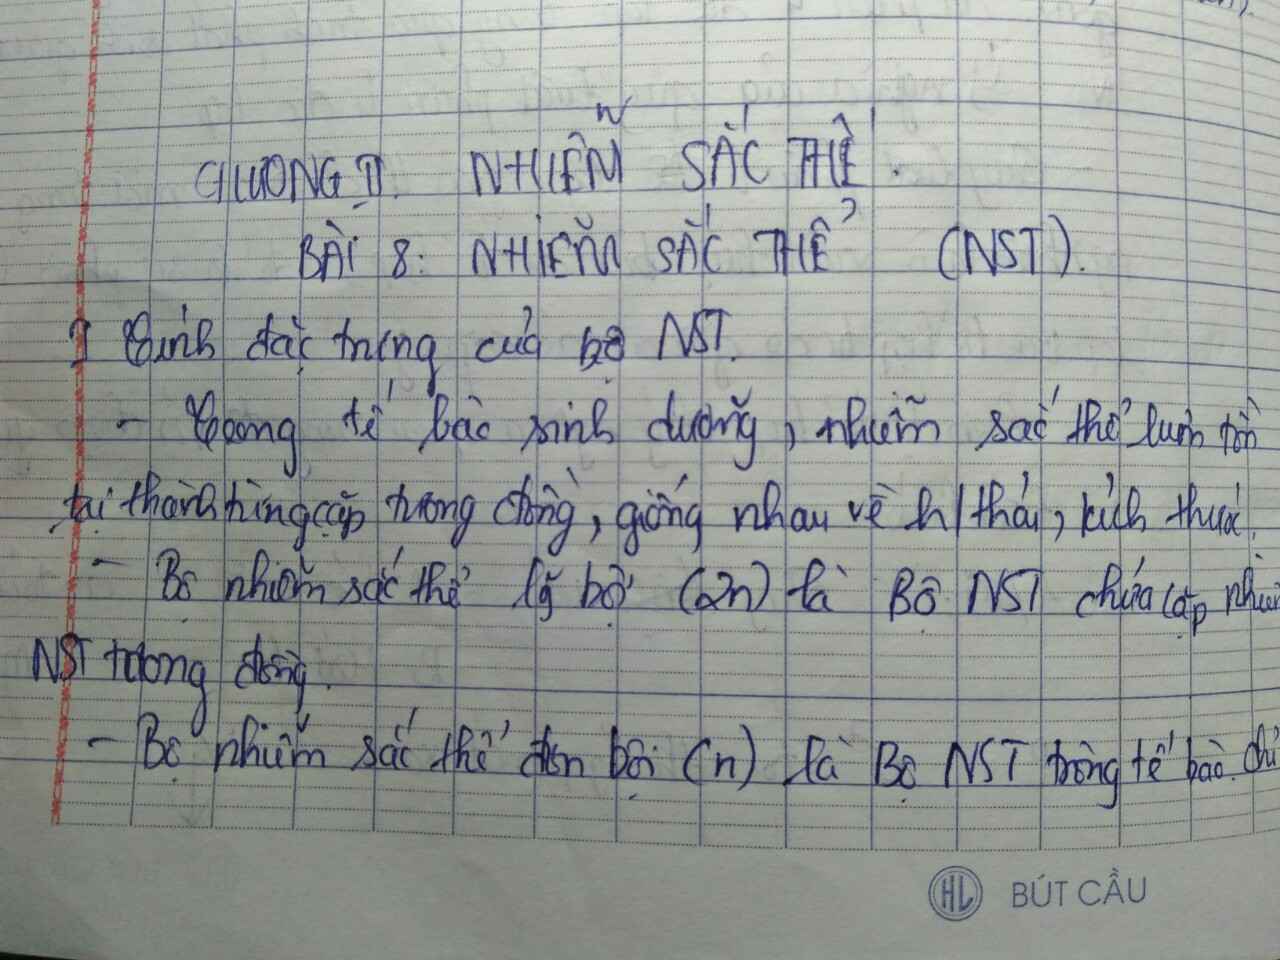 CHƯƠNG II. NHIỄM SẮC THỂ.
BÀI 8: NHIỄM SẮC THỂ (NST).
I Tính đặc trưng của bộ NST.
- Trong tế bào sinh dưỡng, nhiễm sắc thể luôn tồn
tại thành từng cặp tương đồng, giống nhau về h/thái, kích thước.
- Bộ nhiễm sắc thể lưỡng bội (2n) là Bộ NST chứa cặp nhiễm
NST tương đồng.
- Bộ nhiễm sắc thể đơn bội (n) là Bộ NST trong tế bào chỉ
HL BÚT CẦU